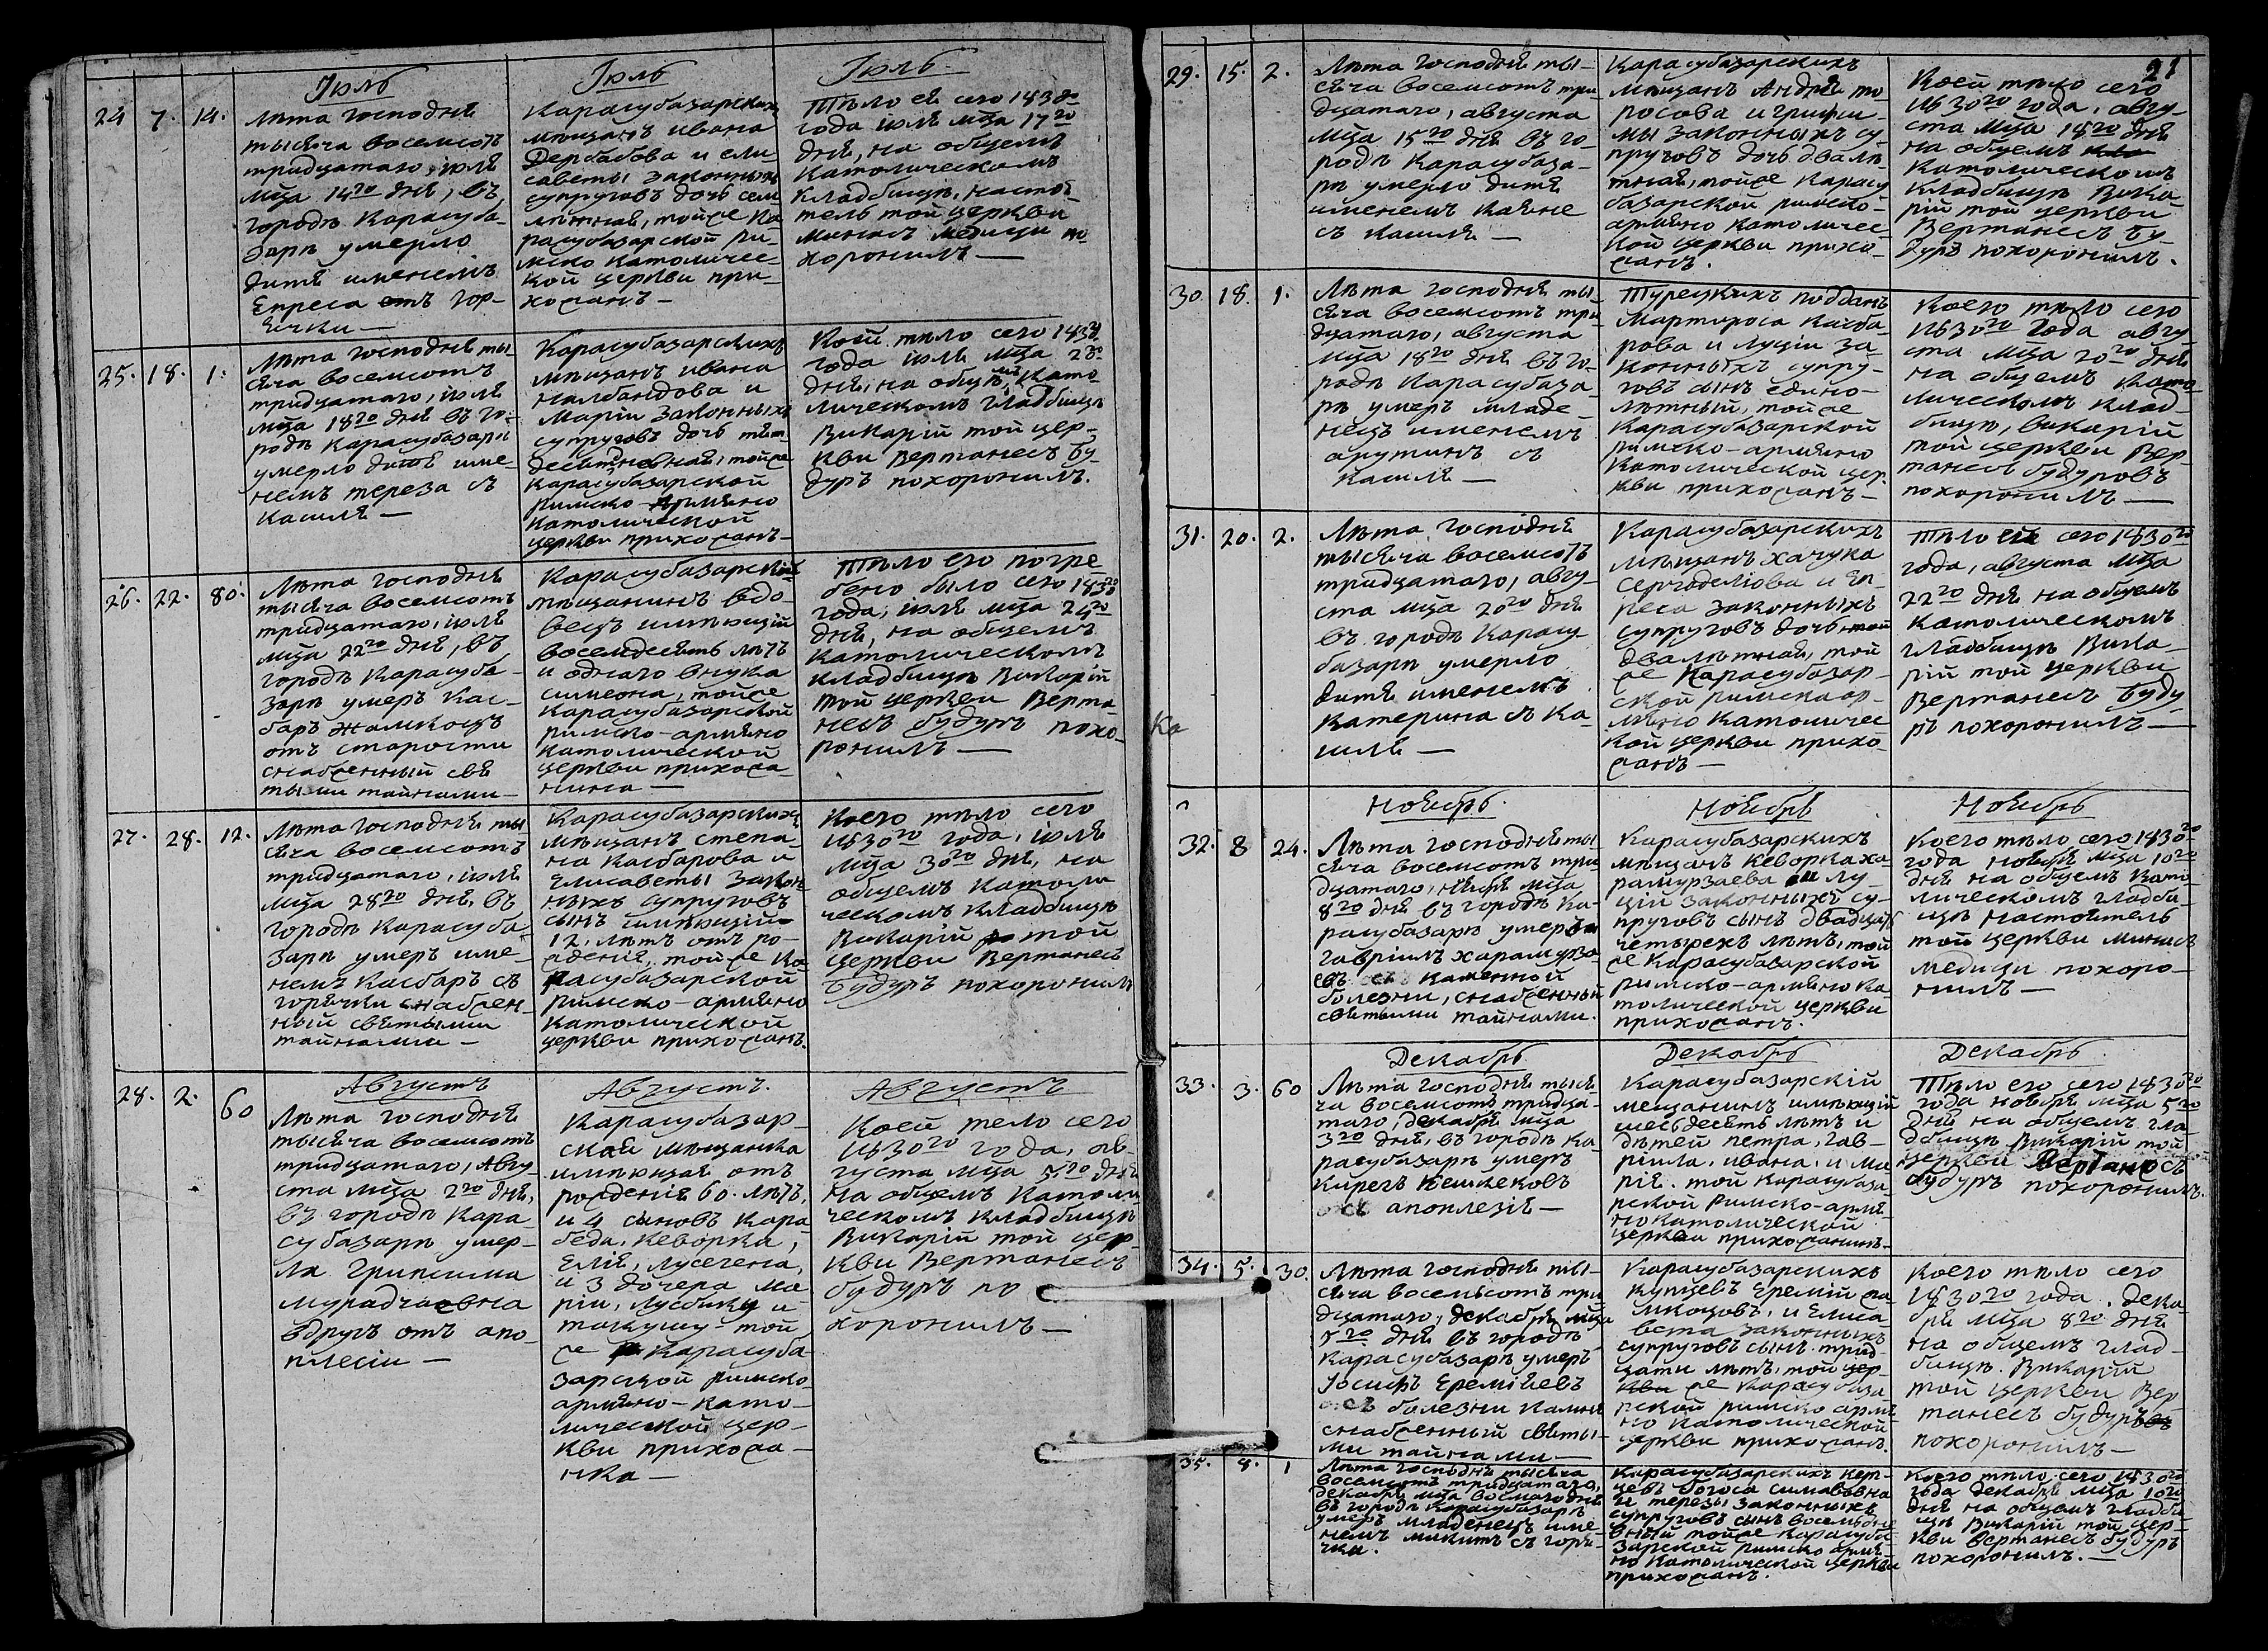 Іюль
24 7. 14.
Лѣта господня
тысяча восемсотъ
тридцатаго, іюля
мца 14го дня, въ
городѣ Карасуба-
зарѣ умерло
дитя именемъ
Епреса отъ гор-
ячки —
Іюль
Карасубазарских
мѣщанъ ивана
Дербабова и ели
саветы законных
супруговъ дочь семи
лѣтная, тойже Ка
расубазарской ри-
мско католичес-
кой церкви при-
хожанъ —
Іюль.
Тѣло ея сего 1830
года іюля мца 17го
дня, на общемъ
католическомъ
кладбищѣ, настоя
тель той церкви
минасъ медици по-
хоронилъ —
25. 18. 1.
Лѣта господня ты-
сяча восемсотъ
тридцатаго, іюля
мца 18го дня въ го-
родѣ Карасубазарѣ
умерло дитя име-
немъ тереза съ
кашля —
Карасубазарскихъ
мѣщанъ ивана
налбандова и
маріи законныхъ
супруговъ дочь пят
десятдневная, тойже
Карасубазарской
римско-Армяно
католической
церкви прихожанъ —
Коей тѣло сего 1830
года іюля мца 20
дня, на общемъ Като-
лическомъ гладбищѣ
Викарій той цер-
кви Вертанесъ Бу-
дуръ похоронилъ.
26. 22. 80.
Лѣта господня
тысяча восемсотъ
тридцатаго, іюля
мца 22го дня, въ
городѣ Карасуба-
зарѣ умеръ Кас-
баръ Жамкоцъ
отъ старости
снабженный свя
тыми тайнами —
Карасубазарскій
мѣщанинъ вдо-
вецъ имѣющій
восемдесятъ лѣтъ
и одного внука
симеона, тойже
Карасубазарской
римско-армяно
католической
церкви прихожа-
нина —
Тѣло его погре
бено было сего 1830го
года, іюля мца 24го
дня, на общемъ
католическомъ
кладбищѣ Викарій
той церкви Верта-
несъ будуръ похо-
ронилъ —
27. 28. 12.
Лѣта господня ты
сяча восемсотъ
тридцатаго, іюля
мца 28го дня, въ
городѣ Карасуба-
зарѣ умеръ име-
немъ Касбаръ съ
горячки снабжен-
ный святыми
тайнами —
Карасубазарскихъ
мѣщанъ степа-
на Касбарова и
Елисаветы закон-
ныхъ супруговъ
сынъ имѣющій
12. лѣтъ отъ ро-
жденія, тойже Ка
расубазарской
римско-армяно
католической
церкви прихожанъ.
Коего тѣло сего
1830го года, іюля
мца 30го дня, на
общемъ католи
ческомъ кладбищѣ
Викарій той
церкви Вертанесъ
Будуръ похоронилъ
28. 2. 60
Августъ
Лѣта господня
тысяча восемсотъ
тридцатаго, Авгу-
ста мца 2го дня,
въ городѣ Кара-
субазарѣ умер-
ла Грипсима
мурадчаевна
вдругъ отъ апо-
плесіи —
Августъ.
Карасубазар-
ская мѣщанка
имѣющая отъ
рожденія 60. лѣтъ,
и 4 сыновъ Кара
беда, Кеворка,
Елія, лусегена,
и 3 дочера ма-
ріи, лусбику и
такушу той
же Карасуба
зарской римско-
армяно-като-
лической цер-
кви прихожа-
нка —
Августъ
Коей тело сего
1830го года, ав-
густа мца 5.го дня
на общемъ католи
ческомъ кладбищѣ
Викарій той цер-
кви Вертанесъ
будуръ по
хоронилъ —
21
29. 15. 2.
Лѣта господня ты-
сяча восемсотъ три-
дцатаго, августа
мца 15го дня въ го-
родѣ Карасубаза-
рѣ умерло дитя
именемъ Каяне
съ кашля —
Карасубазарскихъ
мѣщанъ Андрея то
росова и грипси-
мы законныхъ су
пруговъ дочь двалѣ
тная, тойже Карасу
базарской римско-
армяно католичес-
кой церкви прихо-
жанъ.
Коей тѣло сего
1830го года, авгу-
ста мца 18го дня
на общемъ
Католическомъ
кладбищѣ Вика-
рій той церкви
Вертанесъ Бу-
дуръ похоронилъ.
30. 18. 1.
Лѣта господня ты-
сяча восемсотъ три
дцатаго, августа
мца 18го дня въ го-
родѣ Карасубаза-
рѣ умеръ младе-
нецъ именемъ
арутинъ съ
кашля —
Турецкихъ подданъ
Мартироса Касба-
рова и луціи за-
конныхъ супру-
говъ сынъ едино-
лѣтный, тойже
Карасубазарской
римско-армяно
католической цер-
кви прихожанъ —
Коего тѣло сего
1830го года авгу-
ста мца 20го дня
на общемъ като
лическомъ клад-
бищѣ, викарій
той церкви Вер-
танесъ будуровъ
похоронилъ —
31. 20. 2.
Лѣта господня
тысяча восемсотъ
тридцатаго, авгу-
ста мца 20го дня
въ городѣ Карасу
базарѣ умерло
дитя именемъ
катерина съ ка-
шля —
Ка
Карасубазарскихъ
мѣщанъ хачука
и Еп-
реса законныхъ
супруговъ дочь
двалѣтная, той
же Карасубазар-
ской римскоар-
мяно католичес
кой церкви прихо-
жанъ —
Тѣло ея сего 1830го
года, августа мца
22го дня на общемъ
католическомъ
гладбищѣ Вика-
рій той церкви
Вертанесъ Буду
ръ похоронилъ —
32. 8 24.
Ноябрь.
Лѣта господня ты-
сяча восемсотъ три
дцатаго, ноября мца
8го дня въ городѣ Ка-
расубазарѣ умеръ
гавріилъ харамурза
евъ съ каменной
болезни, снабженный
святыми тайнами.
Ноябрь
Карасубазарскихъ
мѣщанъ Кеворка ха-
рамурзаева и лу-
ціи законныхъ су-
пруговъ сынъ двадцать
четырехъ лѣтъ, той
же Карасубазарской
римско-армяно ка-
толической церкви
прихожанъ.
Ноябрь
Коего тѣло сего 1830го
года ноября мца 10го
дня на общемъ като-
лическомъ гладби-
щѣ настоятель
той церкви минасъ
медици похоро-
нилъ —
33. 3. 60
Декабрь
Лѣта господня тыся
ча восемсотъ тридца-
таго, декабря мца
3го дня, въ городѣ Ка-
расубазарѣ умеръ
Кирегъ Кешкековъ
съ апоплезія —
Декабрь
Карасубазарскій
мещанинъ имѣющій
шесьдесятъ лѣтъ и
дѣтей петра, гав-
ріила, ивана, и ма
рія. той Карасубаза-
рской Римско-армя-
нокатолической
церкви прихожанинъ —
Декабрь.
Тѣло его сего 1830го
года ноября мца 5го
дня на общемъ гла-
дбищѣ Викарій той
церкви Вертанесъ
будуръ похоронилъ.
34. 5. 30.
Лѣта господня ты-
сяча восемьсотъ три
дцатаго, декабря мца
5го дня въ городѣ
Карасубазарѣ умеръ
Іосифъ Еремѣевъ
съ болезни камня
снабженный святы-
ми тайнами —
Карасубазарскихъ
купцевъ Еремій жа-
мкоцовъ, и Елиса-
вета законныхъ
супруговъ сынъ трид-
цати лѣтъ, той цер-
кви же Карасубаза
рской римско армя
но католической
церкви прихожанъ.
Коего тѣло сего
1830го года, дека-
бря мца 8го дня
на общемъ глад-
бищѣ. Викарій
той церкви Вер
танесъ будуръ
похоронилъ —
35. 8. 1
Лѣта господня тысяча
восемсотъ тридцатаго,
декабря мца восмаго дня
въ городѣ Карасубазарѣ
умеръ младенецъ име-
немъ микитъ съ горя-
чки.
Карасубазарскихъ куп-
цевъ богоса
и терезы законныхъ
супруговъ сынъ восемьдне
вный тойже Карасуба-
зарской римско армя-
но католической церкви
прихожанъ.
Коего тѣло сего 1830го
года декабря мца 10го
дня на общемъ гладби-
щѣ Викарій той цер-
кви Вертанесъ будуръ
похоронилъ. —